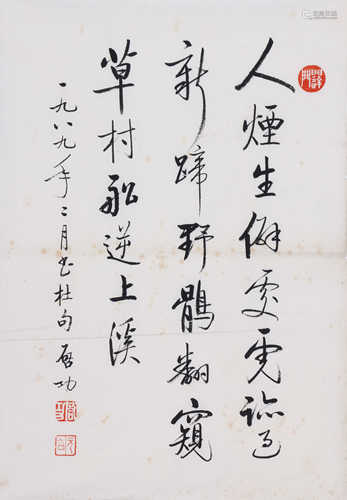 人煙生僻處虎跡過
新蹄野鶻翻窺
草村船逆上溪
一九八九年二月書杜句 啟功